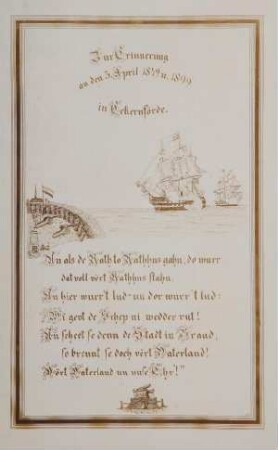 Zur Erinnerung
an den 5. April 1849 u. 1899
in Eckernförde.
Un als de Rath to Rathhus gahn, do wurr
dat voll vört Rathhus stahn.
Un hier wurr't lud un dor wurr't lud:
Wi gevt de Schep ni wedder rut!
Un scheet se denn de Stadt in Brand,
so brennt se doch vört Vaterland!
Vört Vaterland un uns' Ehr!"